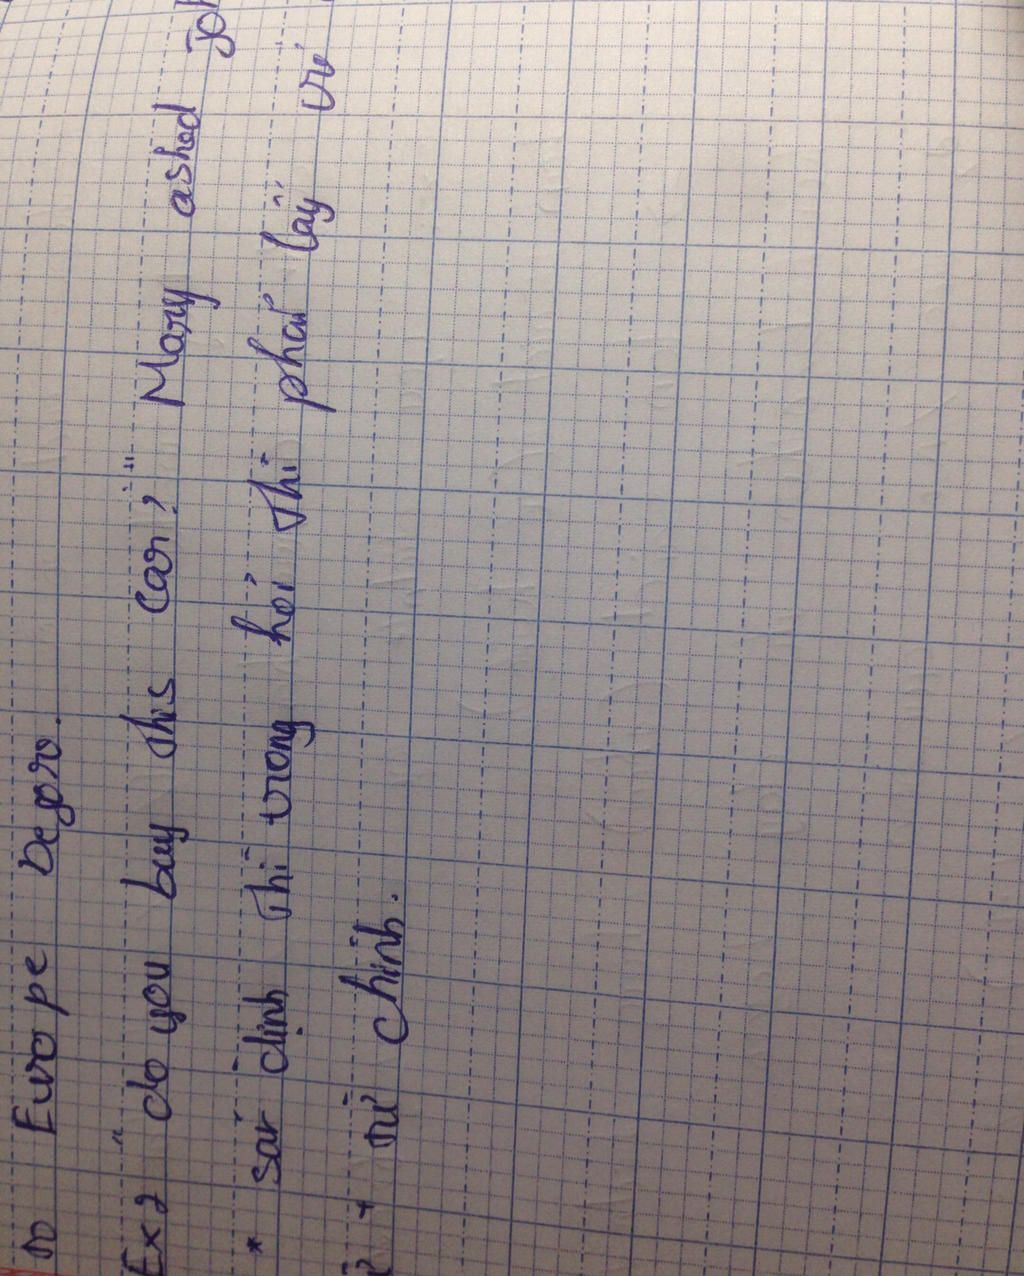 to Europe before.
Ex2 "do you buy this car," Mary asked joh
* sát định thì trong hỏi thì phải lấy vi
+ từ chính.